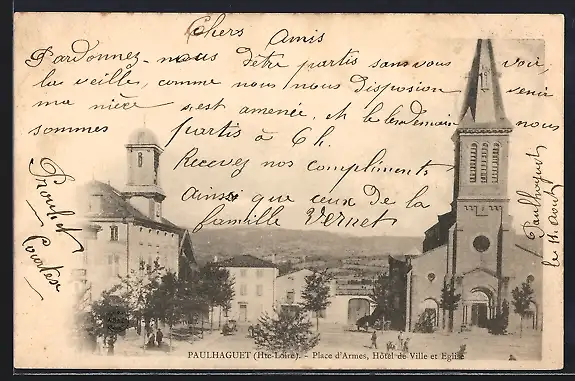 Chers Amis
Pardonnez-nous d'être partis sans vous voir,
la veille, comme nous nous disposion venir
ma nièce s'est amenée, et le lendemain nous
sommes partis à 6h.
Recevez nos compliments
Ainsi que ceux De la
famille Vernet
Paulhaguet
le 11 Août
PAULHAGUET (Hte-Loire). - Place d'Armes, Hôtel de Ville et Eglise